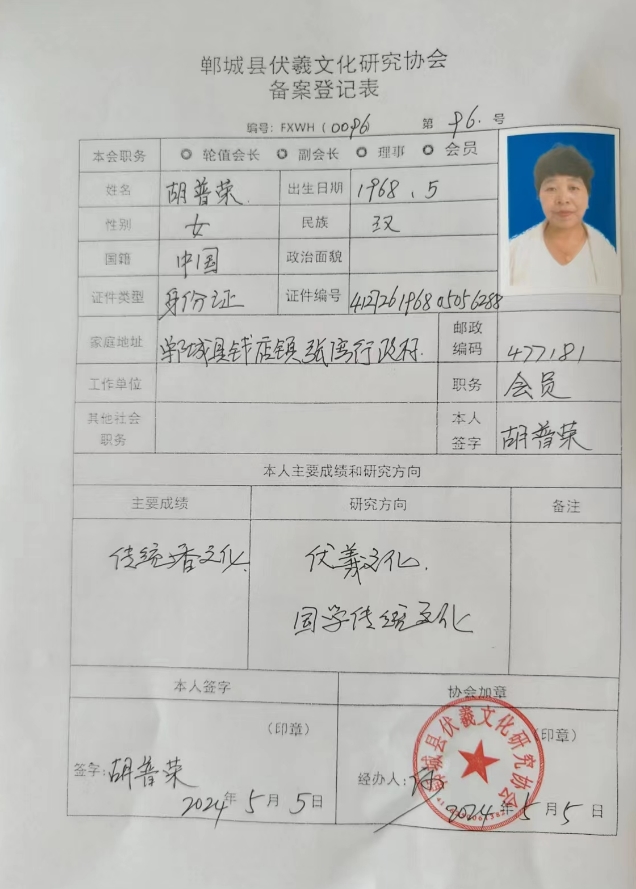 郸城县伏羲文化研究协会
备案登记表
编号: FXWH ( 0096 第 96. 号
本会职务 轮值会长 副会长 理事 会员
姓名 胡普荣. 出生日期 1968.5
性别 女 民族 汉
国籍 中国 政治面貌
证件类型 身份证 证件编号 412726196805056288
家庭地址 郸城县钱店镇张湾行政村. 邮政编码 477181
工作单位 职务 会员
其他社会职务 本人签字 胡普荣
本人主要成绩和研究方向
主要成绩 研究方向 备注
传统香文化. 伏羲文化.
国学传统文化
本人签字 协会加章
(印章) (印章)
郸城县伏羲文化研究协会
签字: 胡普荣 经办人:
2024年5月5日 2024年5月5日